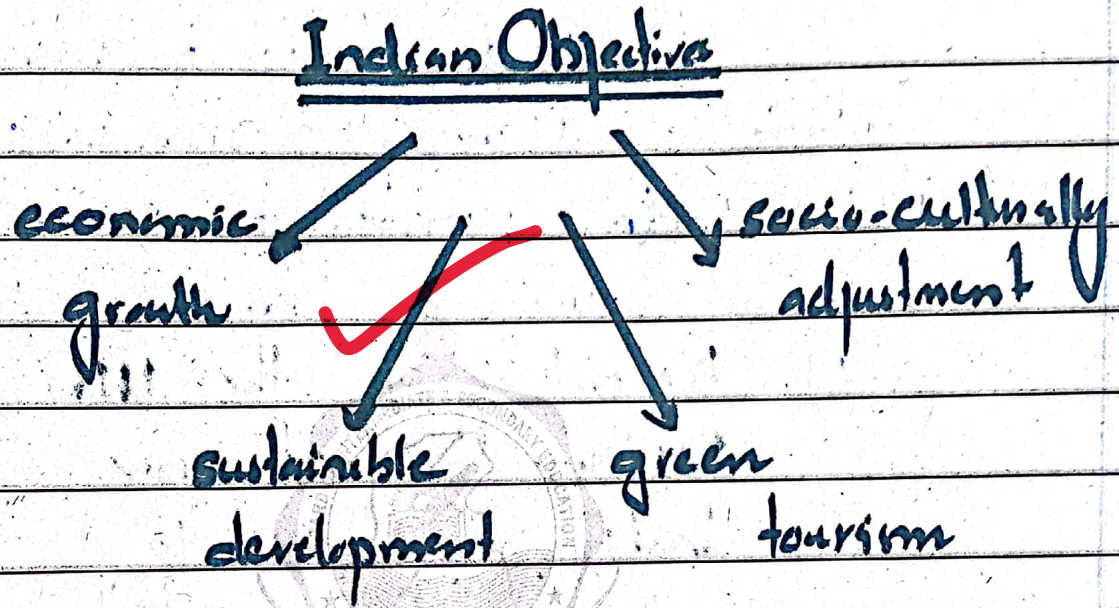 Indian Objectives
economic
growth
socio-culturally
adjustment
sustainible
development
green
tourism
SECONDARY EDUCATION